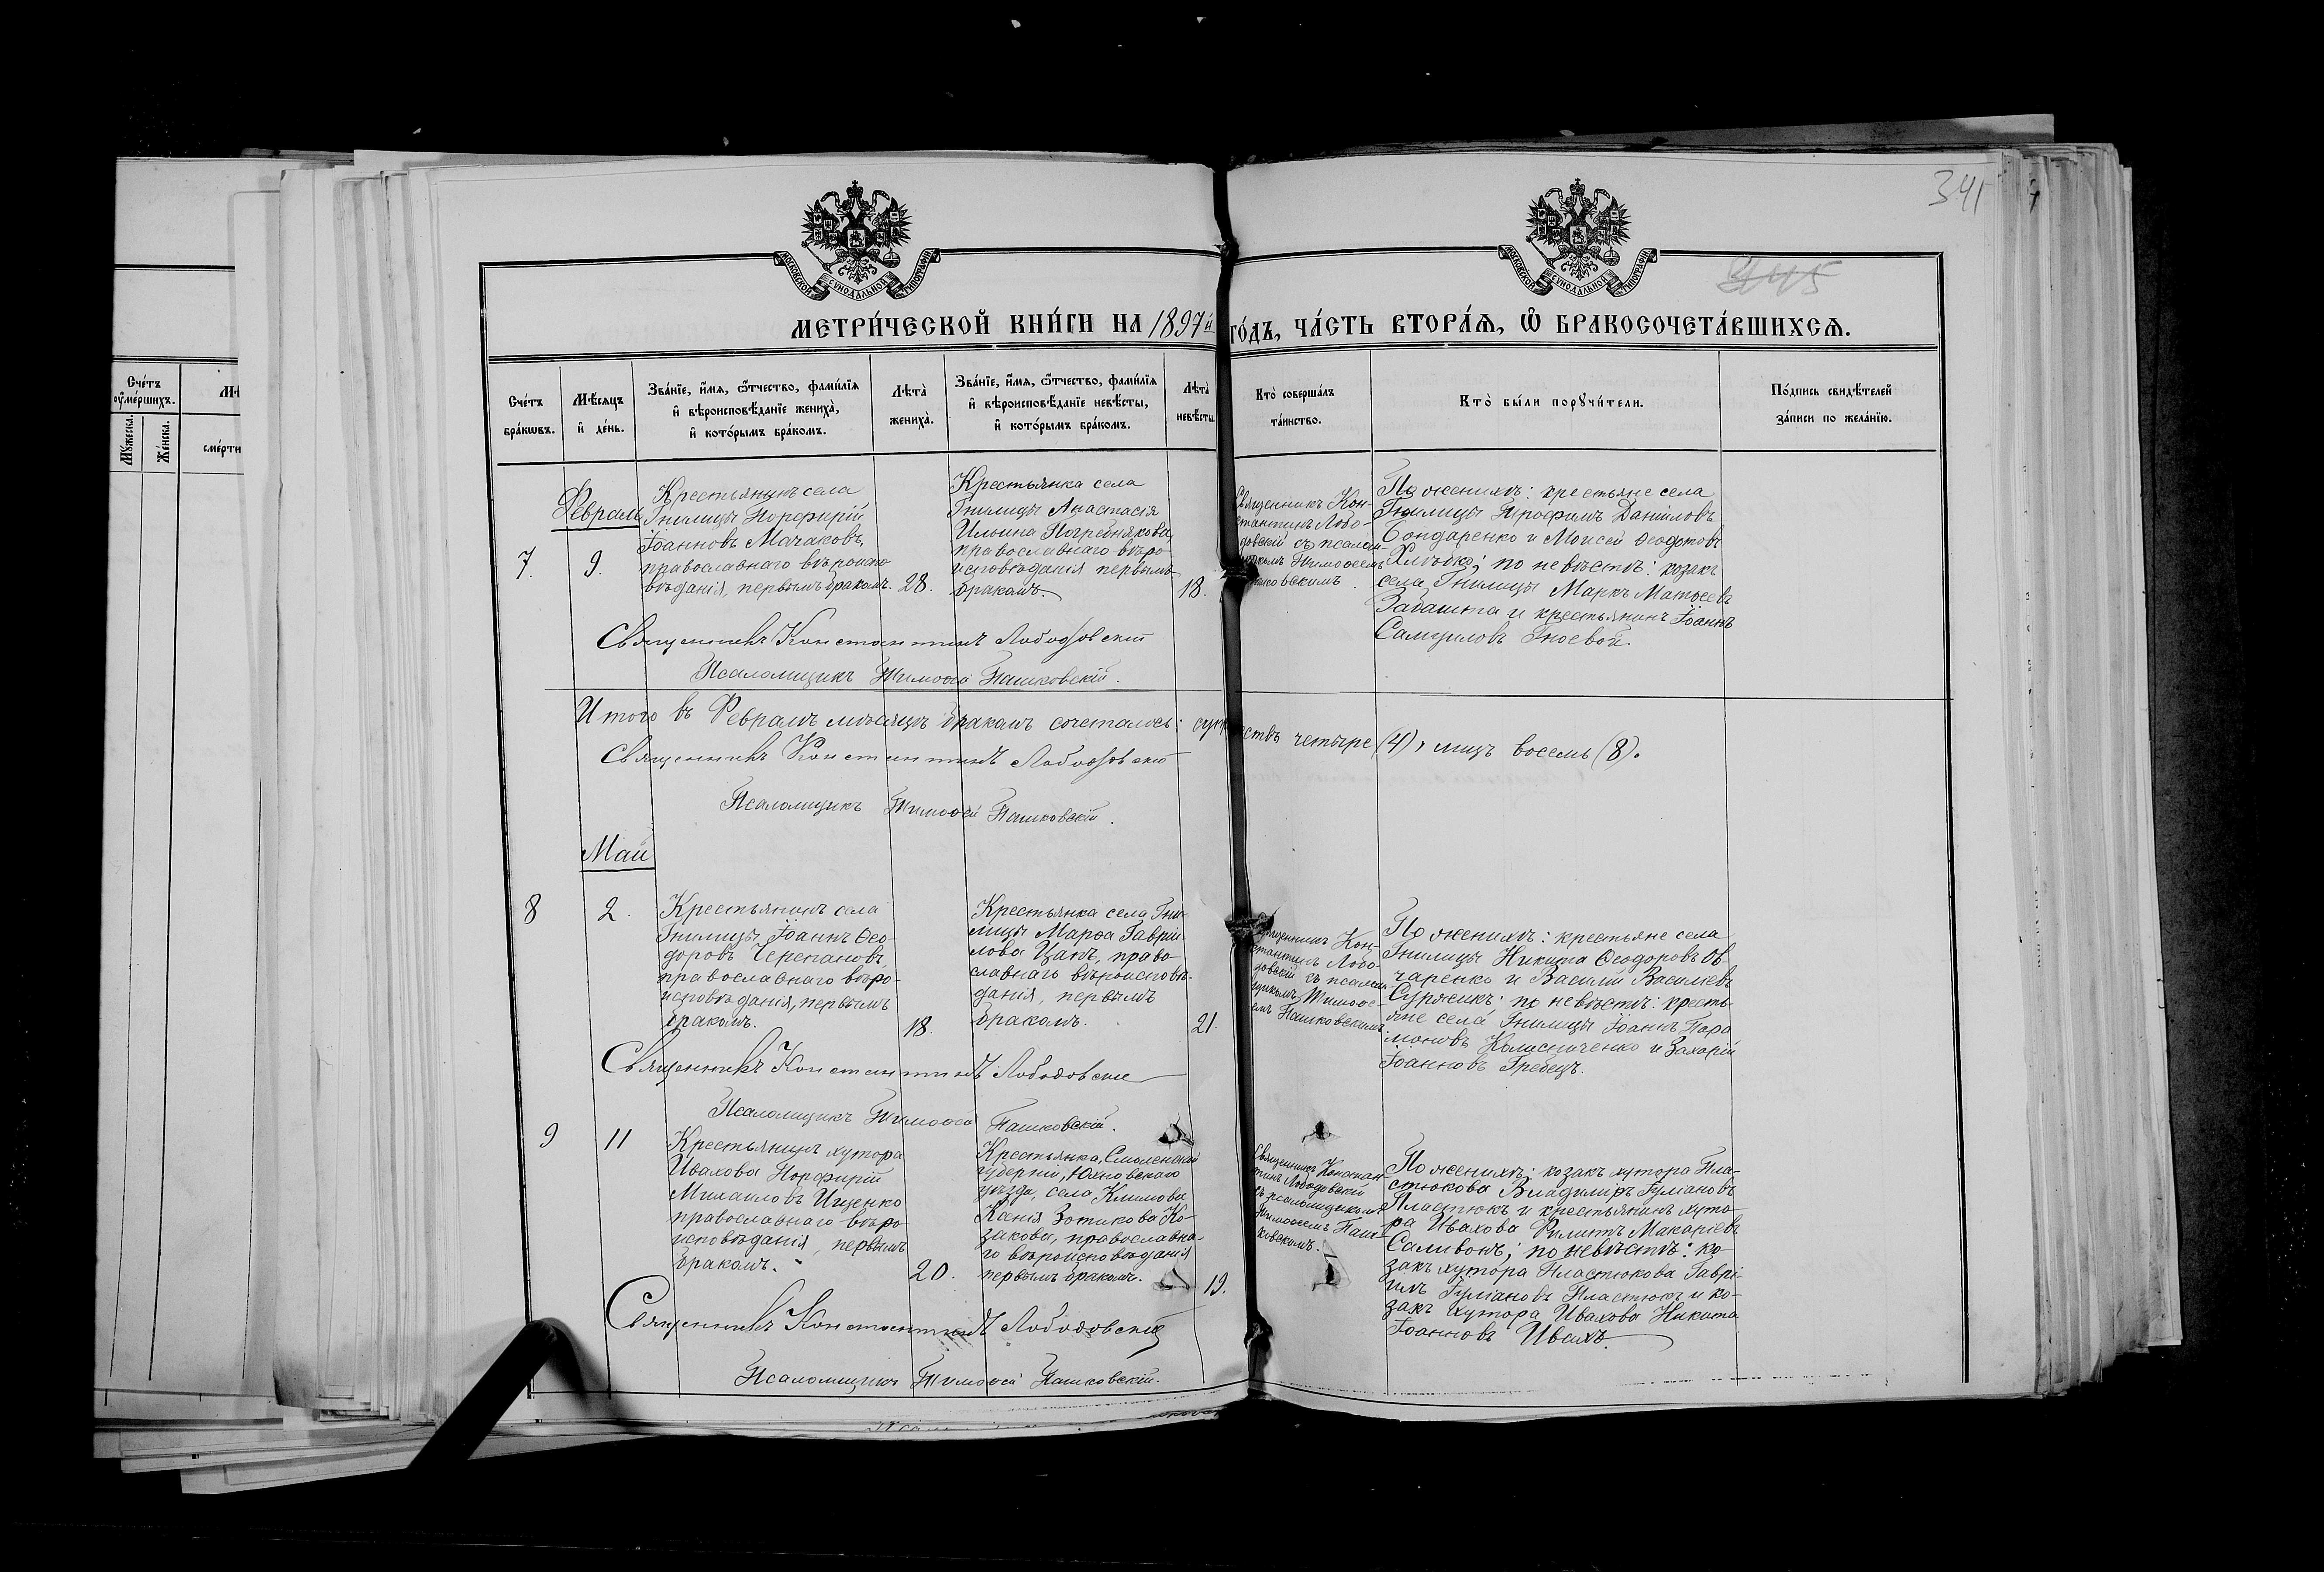 341
445
МОСКОВСКОЙ СѴНОДАЛЬНОЙ ТИПОГРАФІИ
МОСКОВСКОЙ СѴНОДАЛЬНОЙ ТИПОГРАФІИ
МЕТРИ́ЧЕСКОЙ КНИ́ГИ НА 1897й ГО́ДЪ, ЧА́СТЬ ВТОРА́Ѧ, Ѽ БРАКОСОЧЕТА́ВШИХСѦ.
Сче́тъ
оу҆ме́ршихъ.
Мꙋ́жеска.
Же́нска.
сме́рти
Сче́тъ
бра́кѡвъ.
Мѣ́сѧцъ
и҆ де́нь.
Зва́нїе, и҆́мѧ, ѻ҆́тчество, фами́лїѧ
и҆ вѣроисповѣ́данїе жениха̀,
и҆ кото́рымъ бра́комъ.
Лѣ́та
жениха̀.
Зва́нїе, и҆́мѧ, ѻ҆́тчество, фами́лїѧ
и҆ вѣроисповѣ́данїе невѣ́сты,
и҆ кото́рымъ бра́комъ.
Лѣ́та
невѣ́сты.
Кто̀ соверша́лъ
та́инство.
Кто̀ бы́ли порꙋчи́тели.
По́дпись свидѣ́телей
за́писи по жела́нїю.
Февраль
7.
9.
Крестьянинъ села
Гнилицы Порфирій
Іоанновъ Мачаковъ,
православнаго вѣроиспо
вѣданія, первымъ бракомъ.
28.
Крестьянка села
Гнилицы Анастасія
Ильина Погребнякова,
православнаго вѣро
исповѣданія первымъ
бракомъ.
18.
Священникъ Кон-
стантинъ Лобо-
довскій съ псалом-
щикомъ Тимоѳеемъ
Пашковскимъ
По женихѣ: крестьяне села
Гнилицы Трофимъ Даніиловъ
Бондаренко и Моисей Ѳеодотовъ
по невѣстѣ: козакъ
села Гнилицы Маркъ Матѳеевъ
Забашта и крестьянинъ Іоаннъ
Самуиловъ Гноевой.
Священникъ Константинъ Лободовскій
Псаломщикъ Тимоѳей Пашковскій.
Итого въ Февралѣ мѣсяцѣ бракомъ сочеталось: супружествъ четыре (4), лицъ восемь (8).
Священникъ Константинъ Лободовскій
Псаломщикъ Тимоѳей Пашковскій.
Май
8
2.
Крестьянинъ села
Гнилицы Іоаннъ Ѳео-
доровъ Черепановъ
православнаго вѣро-
исповѣданія, первымъ
бракомъ.
18.
Крестьянка села Гни-
лицы Марѳа Гаврі-
лова Цапъ, право-
славнаго вѣроисповѣ-
данія, первымъ
бракомъ.
21.
Священникъ Кон-
стантинъ Лобо-
довскій съ псалом-
щикомъ Тимоѳе-
емъ Пашковскимъ.
По женихѣ: крестьяне села
Гнилицы Никита Ѳеодоровъ Ов-
чаренко и Василій Васильевъ
по невѣстѣ: кресть-
яне села Гнилицы Іоаннъ Пара
моновъ Колесниченко и Захарій
Іоанновъ Гребецъ.
Священникъ Константинъ Лободовскій
Псаломщикъ Тимоѳей Пашковскій.
9
11
Крестьянинъ хутора
Ивахова Порфирій
Михаиловъ Ищенко
православнаго вѣро
исповѣданія, первымъ
бракомъ.
20.
Крестьянка, Смоленской
губерніи, Юхновскаго
уѣзда, села Климова
Ксенія Зотикова Ко-
закова, православна-
го вѣроисповѣданія
первымъ бракомъ.
19.
Священникъ Констан
тинъ Лободовскій
съ псаломщикомъ
Тимоѳеемъ Паш-
ковскимъ.
По женихѣ: козакъ хутора Пла-
стюкова Владиміръ Іуліановъ
Пластюкъ и крестьянинъ хуто-
ра Ивахова Филиппъ Макаріевъ
Саливонъ; по невѣстѣ: ко-
закъ хутора Пластюкова Гаврі-
илъ Іуліановъ Пластюкъ и ко-
закъ хутора Ивахова Никита
Іоанновъ Ивахъ.
Священникъ Константинъ Лободовскій
Псаломщикъ Тимоѳей Пашковскій.